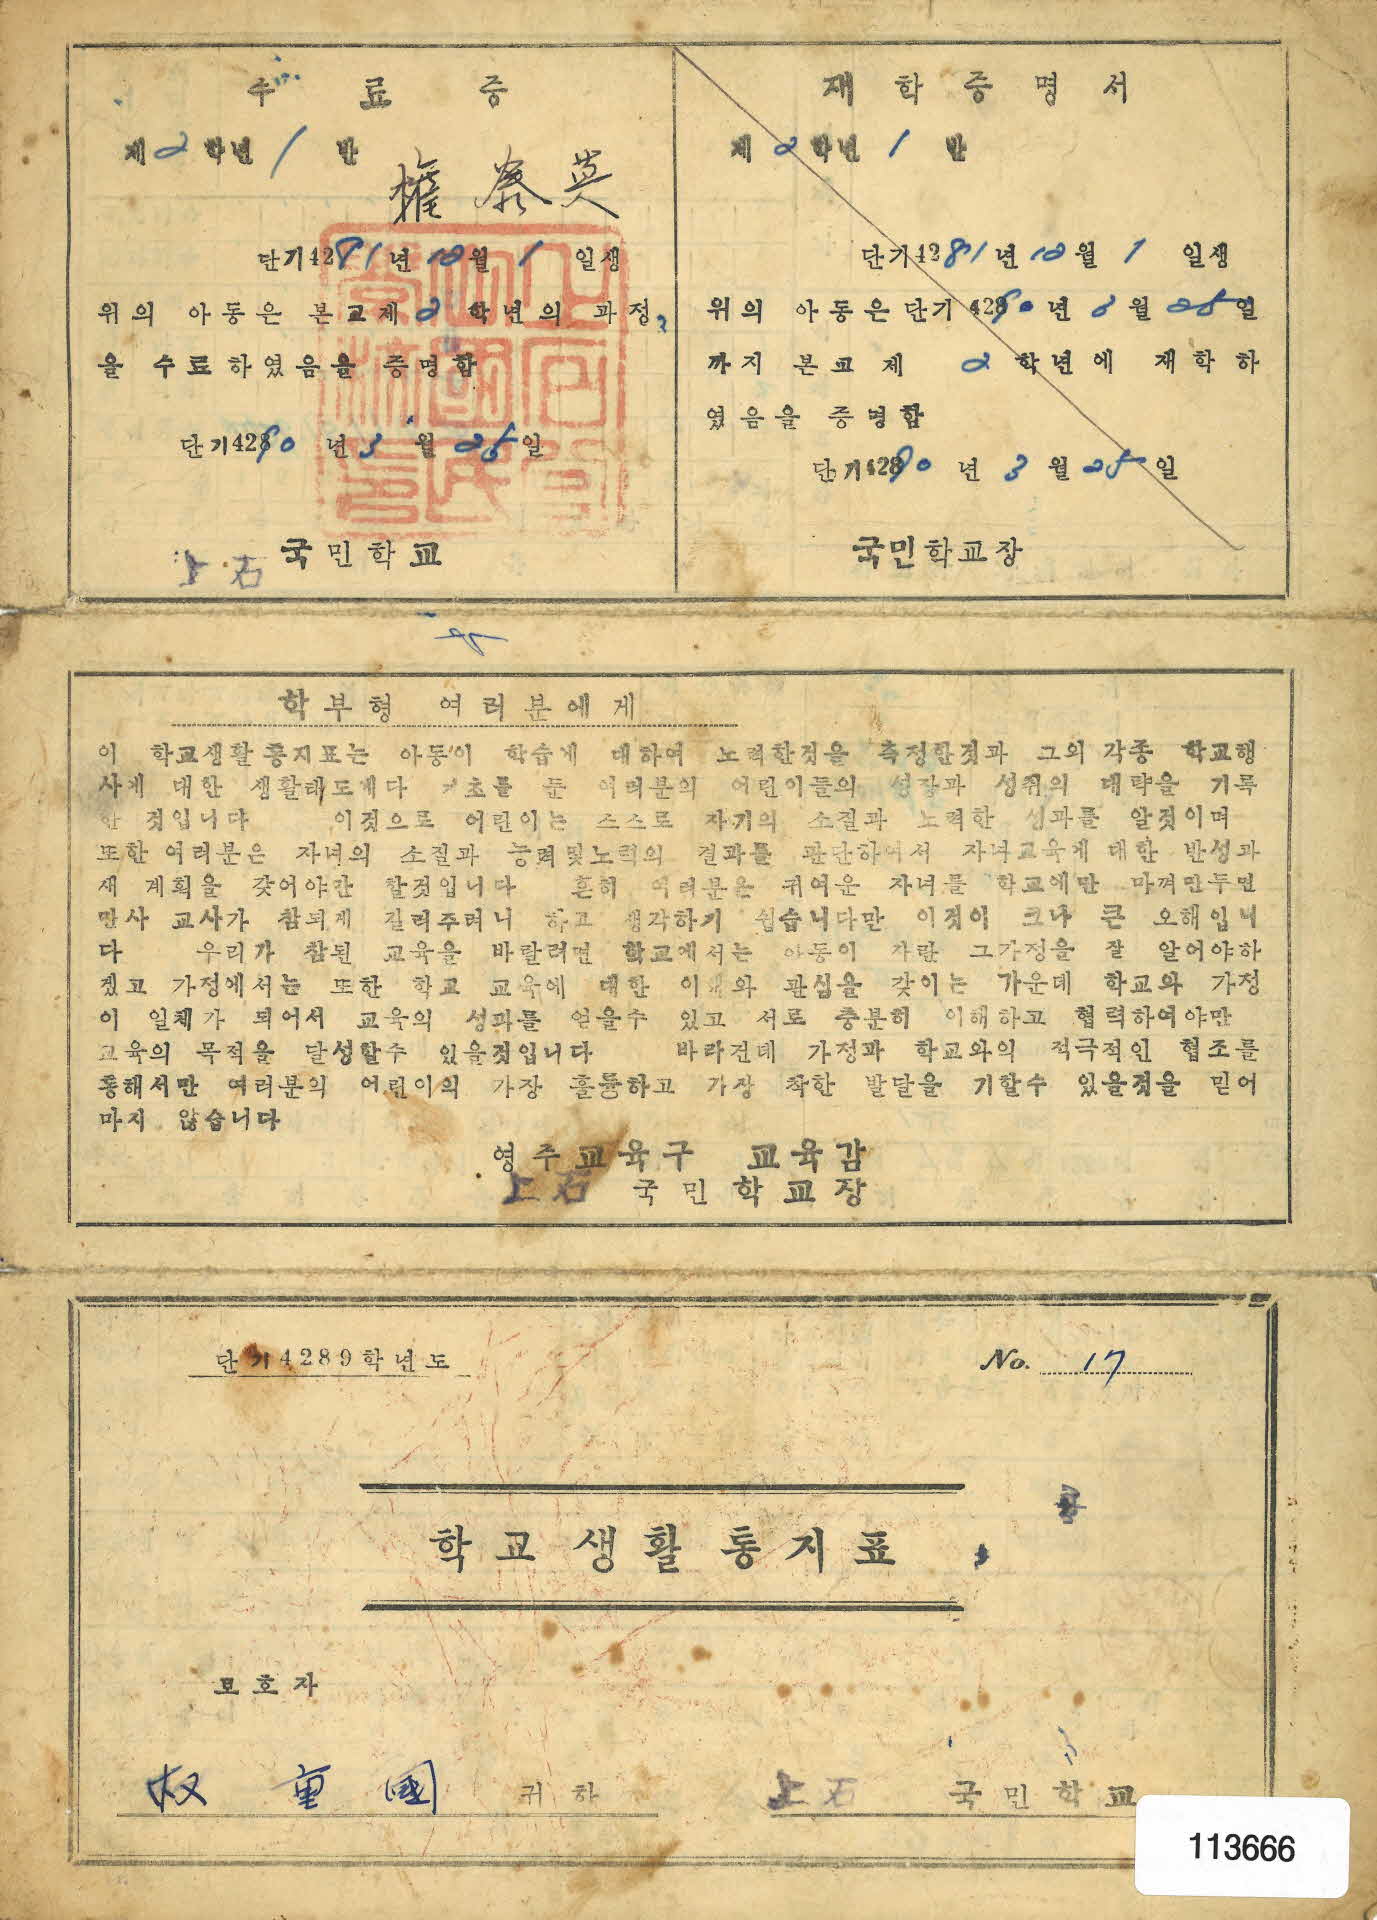 수료증
제2학년 1 반
權泰英
단기4281년 10월 1 일생
위의 아동은 본교제 2 학년의 과정
을 수료하였음을 증명함
단기4290년 3월 25일
上石 국민학교
재학증명서
제 2학년 1 반
단기4281년 10월 1 일생
위의 아동은 단기 4290년 3월 25일
까지 본교 제 2 학년에 재학하
였음을 증명함
단기4290년 3월 25일
국민학교장
학부형 여러분에게
이 학교생활통지표는 아동이 학습에 대하여 노력한것을 측정한것과 그외 각종 학교행
사에 대한 생활태도에다 기초를 둔 여러분의 어린이들의 성장과 성취의 대략을 기록
한 것입니다 이것으로 어린이는 스스로 자기의 소질과 노력한 성과를 알것이며
또한 여러분은 자녀의 소질과 능력및노력의 결과를 판단하여서 자녀교육에 대한 반성과
새 계획을 갖어야만 할것입니다 흔히 여러분은 귀여운 자녀를 학교에만 마껴만두면
만사 교사가 참되게 길러주려니 하고 생각하기 쉽습니다만 이것이 크나 큰 오해입니
다 우리가 참된 교육을 바랄려면 학교에서는 아동이 자란 그가정을 잘 알어야하
겠고 가정에서는 또한 학교 교육에 대한 이해와 관심을 갖이는 가운데 학교와 가정
이 일체가 되어서 교육의 성과를 얻을수 있고 서로 충분히 이해하고 협력하여야만
교육의 목적을 달성할수 있을것입니다 바라건대 가정과 학교와의 적극적인 협조를
통해서만 여러분의 어린이의 가장 훌륭하고 가장 착한 발달을 기할수 있을것을 믿어
마지 않습니다
영주교육구 교육감
上石 국민학교장
단기4289학년도
No. 17
학교생활통지표
보호자
权重國 귀하
上石 국민학교
113666